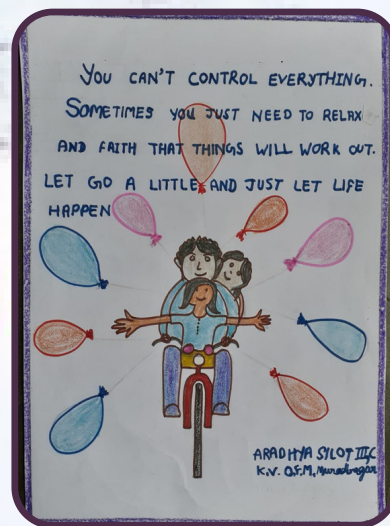 YOU CAN'T CONTROL EVERYTHING.
SOMETIMES YOU JUST NEED TO RELAX
AND FAITH THAT THINGS WILL WORK OUT.
LET GO A LITTLE AND JUST LET LIFE
HAPPEN
ARADHYA SILOT III,C
K.V. O.F.M, Muradnagar